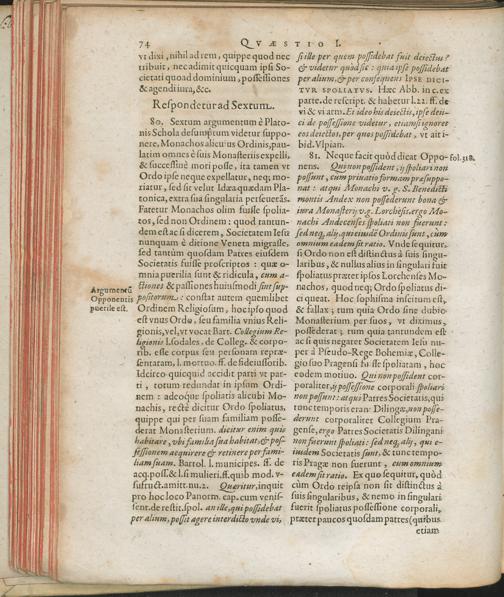 74
QVÆSTIO I.
vt dixi, nihil ad rem, quippe quod nec
tribuit, nec adimit quicquam ipsi So-
cietati quoad dominium, possessiones
& agendi iura, &c.
Respondetur ad Sextum.
80. Sextum argumentum è Plato-
nis Schola desumptum videtur suppo-
nere, Monachos alicuius Ordinis, pau-
latim omnes è suis Monasteriis expelli,
& successiuè mori posse, ita tamen vt
Ordo ipse neque expellatur, neq; mo-
riatur, sed sit velut Idæa quædam Pla-
tonica, extra sua singularia perseuerās.
Fatetur Monachos olim fuisse spolia-
tos, sed non Ordinem: quod tantun-
dem est ac si dicerem, Societatem Iesu
nunquam è ditione Veneta migrasse,
sed tantùm quosdam Patres eiusdem
Societatis fuisse proscriptos: quæ o-
mnia puerilia sunt & ridicula, cum a-
ctiones & passiones huiusmodi sint sup-
positorum: constat autem quemlibet
Ordinem Religiosum, hoc ipso quod
est vnus Ordo, seu familia vnius Reli-
gionis, vel, vt vocat Bart. Collegium Re-
ligionis l. sodales. de Colleg. & corpo-
rib. esse corpus seu personam repræ-
sentatam, l. mortuo. ff. de fideiussorib.
Idcirco quicquid accidit parti vt par-
ti, totum redundat in ipsum Ordi-
nem: adeoque spoliatis alicubi Mo-
nachis, rectè dicitur Ordo spoliatus,
quippe qui per suam familiam posse-
derat Monasterium. dicitur enim quis
habitare, vbi familia sua habitat, & pos-
sessionem acquirere & retinere per fami-
liam suam. Bartol. l. municipes. ff. de
acq. poss. & l. si mulieri. ff. quib mod. v-
susfruct. amitt. nu. 2. Quæritur, inquit
pro hoc loco Panorm. cap. cum venis-
sent. de restit. spol. an ille, qui possidebat
per alium, possit agere interdicto vnde vi,
Argumentū
Opponentis
puerile est.
si ille per quem possidebat fuit deiectus?
& videtur quòd sic: quia ipse possidebat
per alium, & per consequens IPSE DICI-
TVR SPOLIATVS. Hæc Abb. in c. ex
parte. de rescript. & habetur l. 1. §. 22. ff. de
vi & vi arm. Et ideo his deiectis, ipse deii-
ci de possessione videtur, etiamsi ignoret
eos deiectos, per quos possidebat, vt ait i-
bid. Vlpian.
81. Neque facit quòd dicat Oppo-
nens. Qui non possident, ij spoliari non
possunt, cum priuatio formam præsuppo-
nat: atqui Monachi v. g. S. Benedicti
montis Andex non possederunt bona &
iura Monasterij v. g. Lorchēsis, ergo Mo-
nachi Andecenses spoliati non fuerunt:
sed neq, alij, qui eiusdē Ordinis sunt, cùm
omnium eadem sit ratio. Vnde sequitur,
si Ordo non est distinctus à suis singu-
laribus, & nullus alius in singulari fuit
spoliatus præter ipsos Lorchenses Mo-
nachos, quod neq; Ordo spoliatus di-
ci queat. Hoc sophisma inscitum est,
& fallax; tum quia Ordo sine dubio
Monasterium per suos, vt diximus,
possederat; tum quia tantundem est
ac si quis negaret Societatem Iesu nu-
per à Pseudo-Rege Bohemiæ, Colle-
gio suo Pragensi fuisse spoliatam, hoc
eodem motiuo. Qui non possident cor-
poraliter, ij possessione corporali spoliari
non possunt: atqui Patres Societatis, qui
tunc temporis erant Dilingæ, non posse-
derunt corporaliter Collegium Pra-
gense, ergo Patres Societatis Dilingani
non fuerunt spoliati: sed neq, alij, qui e-
iusdem Societatis sunt, & tunc tempo-
ris Pragæ non fuerunt, cum omnium
eadem sit ratio. Ex quo sequitur, quòd
cùm Ordo reipsa non sit distinctus à
suis singularibus, & nemo in singulari
fuerit spoliatus possessione corporali,
præter paucos quosdam patres (quibus
etiam
fol. 318.